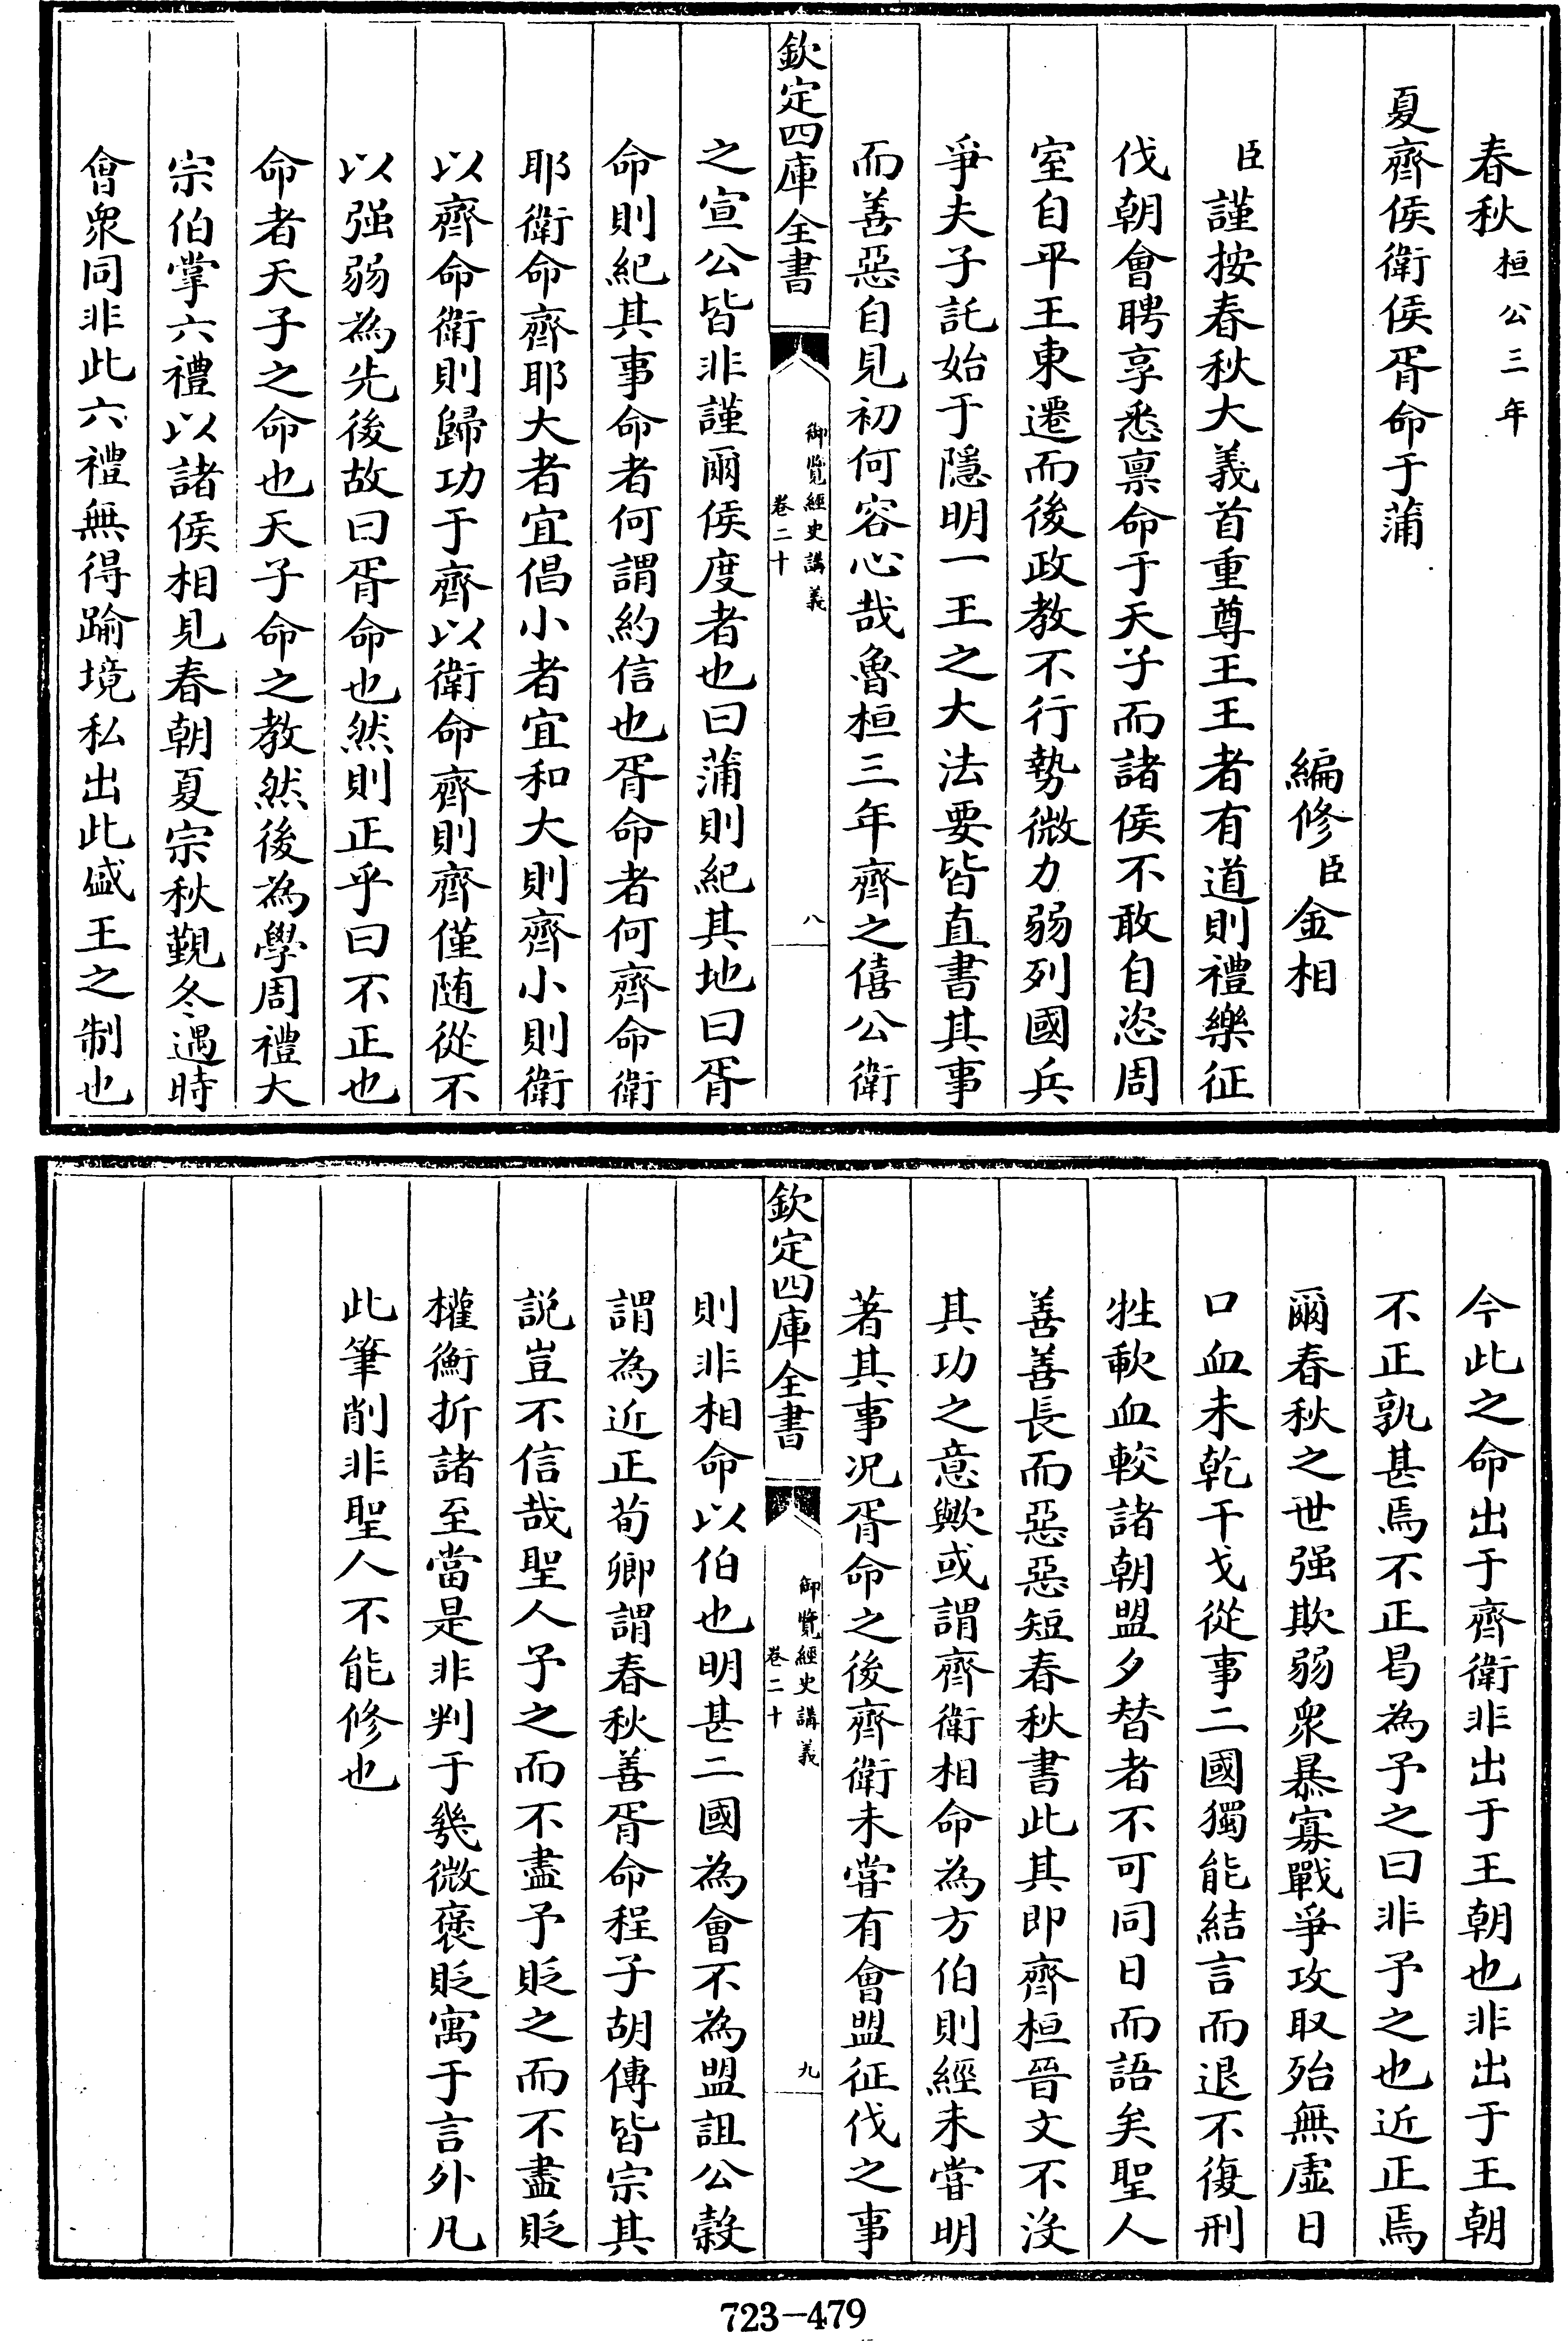 春秋桓公三年
夏齊侯衛侯胥命于蒲
編修臣金相
臣謹按春秋大義首重尊王王者有道則禮樂征
伐朝會聘享悉禀命于天子而諸侯不敢自恣周
室自平王東遷而後政教不行勢微力弱列國兵
爭夫子託始于隱明一王之大法要皆直書其事
而善惡自見初何容心哉魯桓三年齊之僖公衛
欽定四庫全書
御覽經史講義
卷二十
八
之宣公皆非謹爾侯度者也曰蒲則紀其地曰胥
命則紀其事命者何謂約信也胥命者何齊命衛
耶衛命齊耶大者宜倡小者宜和大則齊小則衛
以齊命衛則歸功于齊以衛命齊則齊僅随從不
以强弱為先後故曰胥命也然則正乎曰不正也
命者天子之命也天子命之教然後為學周禮大
宗伯掌六禮以諸侯相見春朝夏宗秋覲冬遇時
會衆同非此六禮無得踰境私出此盛王之制也
今此之命出于齊衛非出于王朝也非出于王朝
不正孰甚焉不正曷為予之曰非予之也近正焉
爾春秋之世强欺弱衆暴寡戰爭攻取殆無虚日
口血未乾干戈從事二國獨能結言而退不復刑
牲歃血較諸朝盟夕替者不可同日而語矣聖人
善善長而惡惡短春秋書此其即齊桓晉文不没
其功之意歟或謂齊衛相命為方伯則經未嘗明
著其事况胥命之後齊衛未嘗有會盟征伐之事
欽定四庫全書
御覽經史講義
卷二十
九
則非相命以伯也明甚二國為會不為盟詛公榖
謂為近正荀卿謂春秋善胥命程子胡傳皆宗其
説豈不信哉聖人予之而不盡予貶之而不盡貶
權衡折諸至當是非判于幾微褒貶寓于言外凡
此筆削非聖人不能修也
723-479